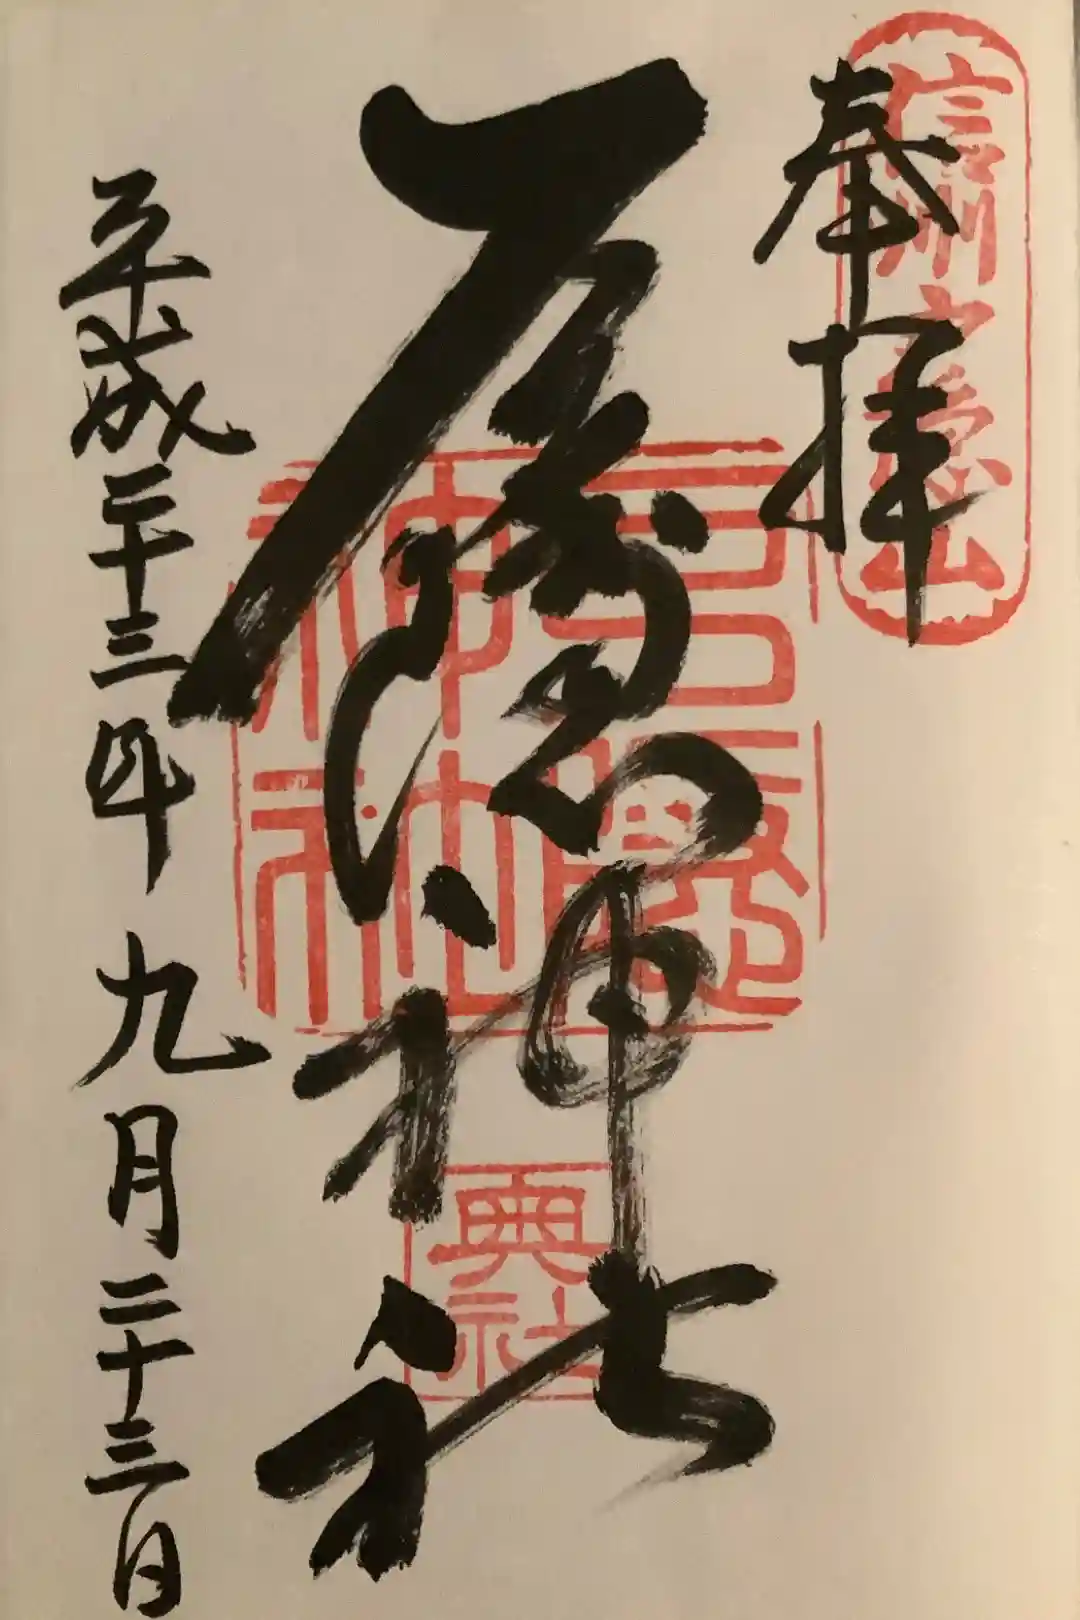 信州戸隠山
奉拝
戸隠神社
戸隠
神社
奥社
平成二十三年九月二十三日